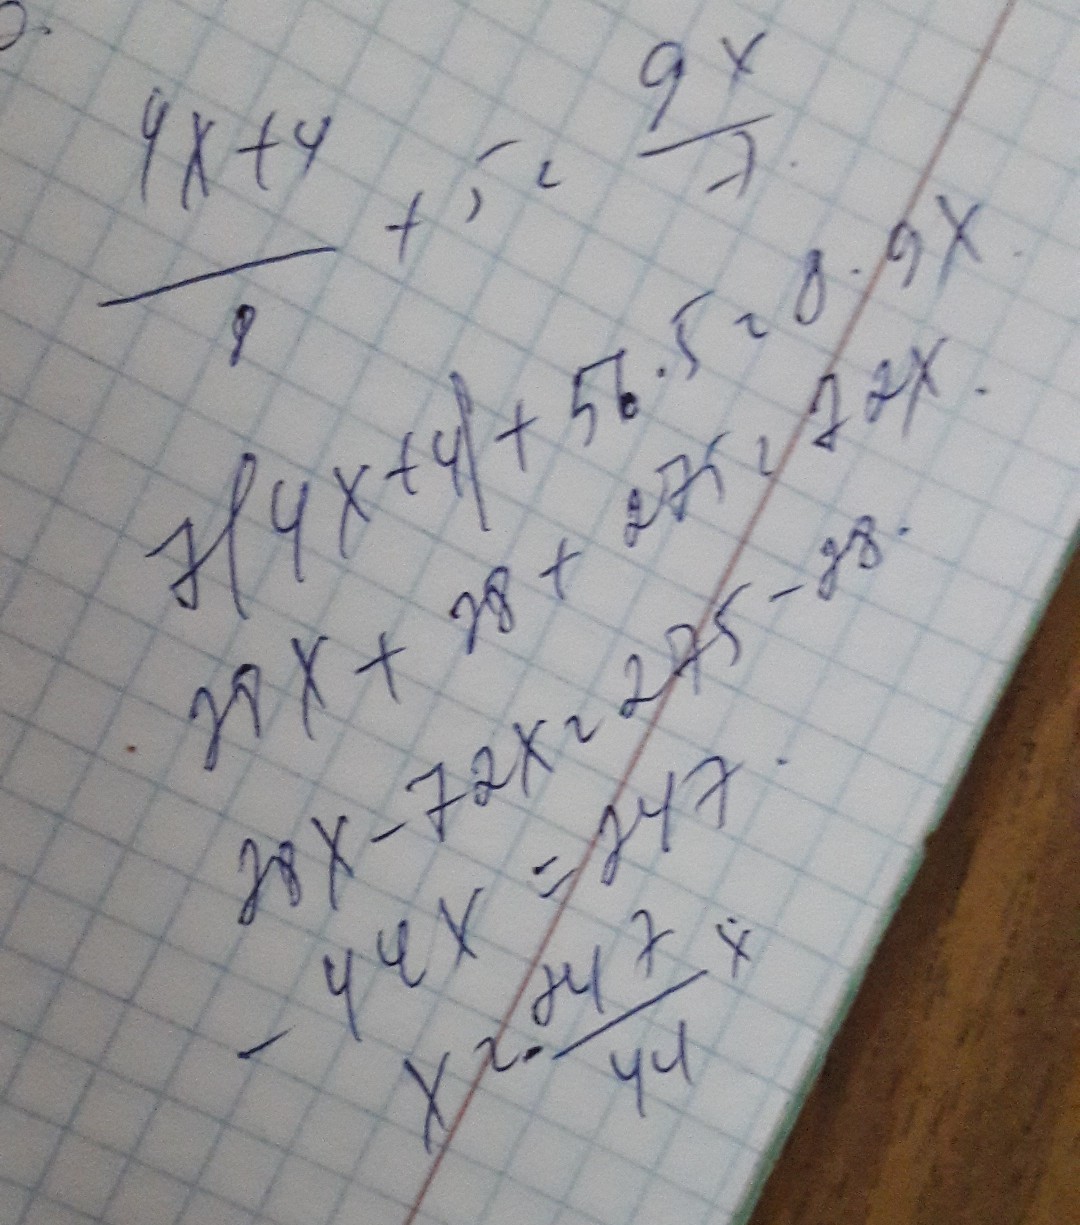 (4x+4)/8 + 5 = 9x/7.
7(4x+4) + 56·5 = 8·9x.
28x + 28 + 275 = 72x.
28x - 72x = 275 - 28.
-44x = 247.
x = -247/44